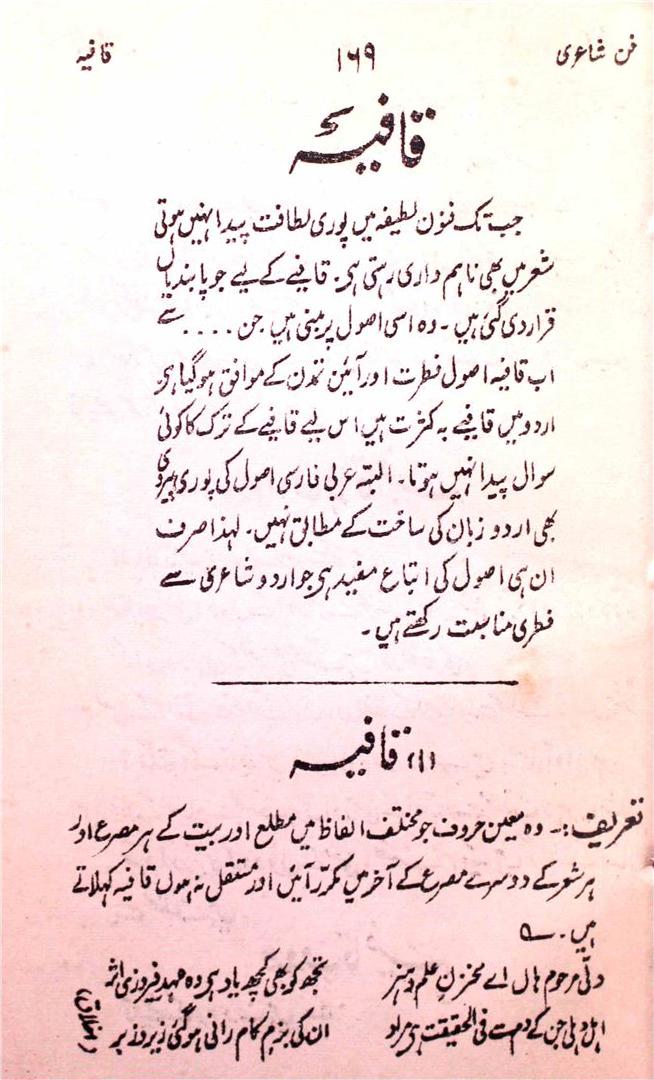 فن شاعری ۱۶۹ قافیہ
قافیہ
جب تک فنون لطیفہ میں پوری لطافت پیدا نہیں ہوتی
شعر میں بھی ناہم داری رستی ہی۔ قافیے کے لیے جو پابندیاں
قرار دی گئی ہیں۔ وہ اسی اصول پر مبنی ہیں جن .... سے
اب قافیہ اصول فطرت اور آئین تمدن کے موافق ہوگیا ہی
اردو میں قافیے بہ کثرت ہیں اس لیے قافیے کے ترک کا کوئی
سوال پیدا نہیں ہوتا۔ البتہ عربی فارسی اصول کی پوری پیروی
بھی اردو زبان کی ساخت کے مطابق نہیں۔ لہذا صرف
ان ہی اصول کی اتباع مفید ہی جو اردو شاعری سے
فطری مناسبت رکھتے ہیں۔
(۱) قافیہ
تعریف:۔ وہ معین حروف جو مختلف الفاظ میں مطلع اور بیت کے ہر مصرع اور
ہر شعر کے دوسرے مصرع کے آخر میں مکرّر آئیں اور مستقل نہ ہوں قافیہ کہلاتے
ہیں۔ ؎
دلّی مرحوم ہاں اے مخزنِ علم و ہنر تجھ کو بھی کچھ یاد ہی وہ عہدِ فیروزی اثر
اہل دہلی جن کے دم سے فی الحقیقت ہی مراد ان کی بزم کام رانی ہوگئی زیر و زبر